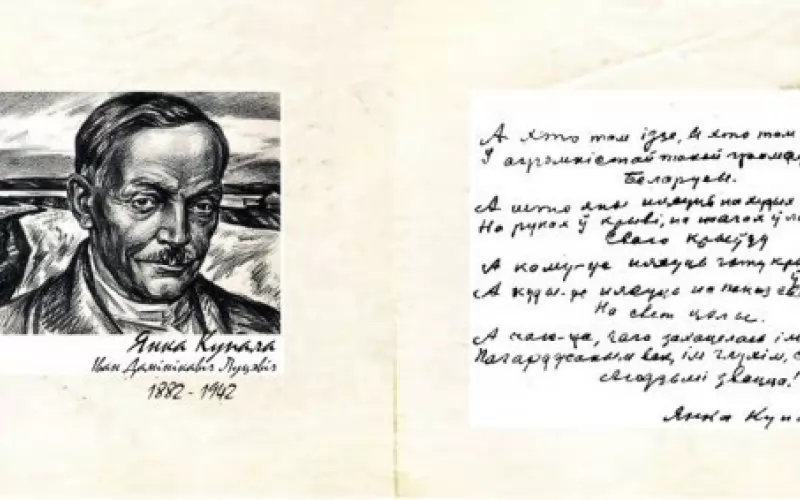 Янка Купала
Іван Дамінікавіч Луцэвіч
1882 - 1942
А хто там ідзе, а хто там
У агромністай такой грамад
Беларусы.
А што яны нясуць на худых
На руках ў крыві, на нагах ў л
Сваю крыўду
А каму-ж нясуць гэту кры
А куды-ж нясуць на паказ св
На свет цэлы.
А чаго-ж, чаго захацелась ім
Пагарджаным век, ім глухім, с
Людзьмі звацца!
Янка Куп